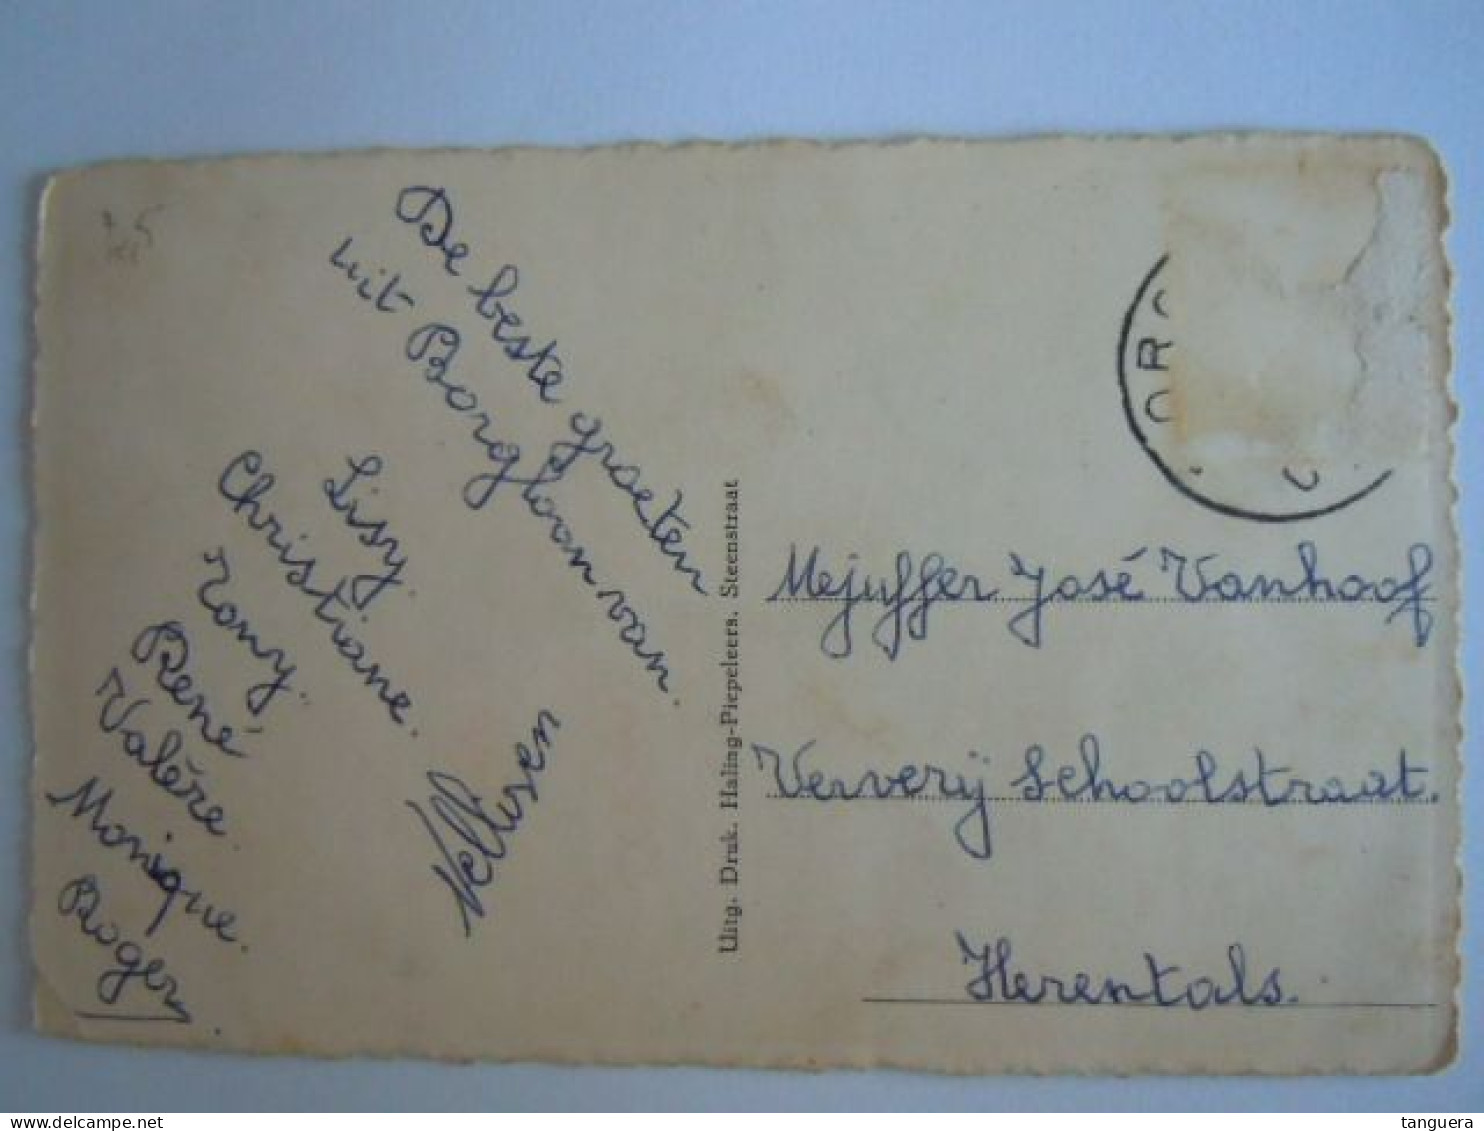 De beste groeten
uit Borgloon van.
Lisy.
Christiane.
Tony.
René
Valère.
Monique.
Roger
Uitg. Druk. Haling-Piepeleers. Steenstraat
ORG
Mejuffer José Vanhoof
Ververij Schoolstraat.
Herentals.
tanguera